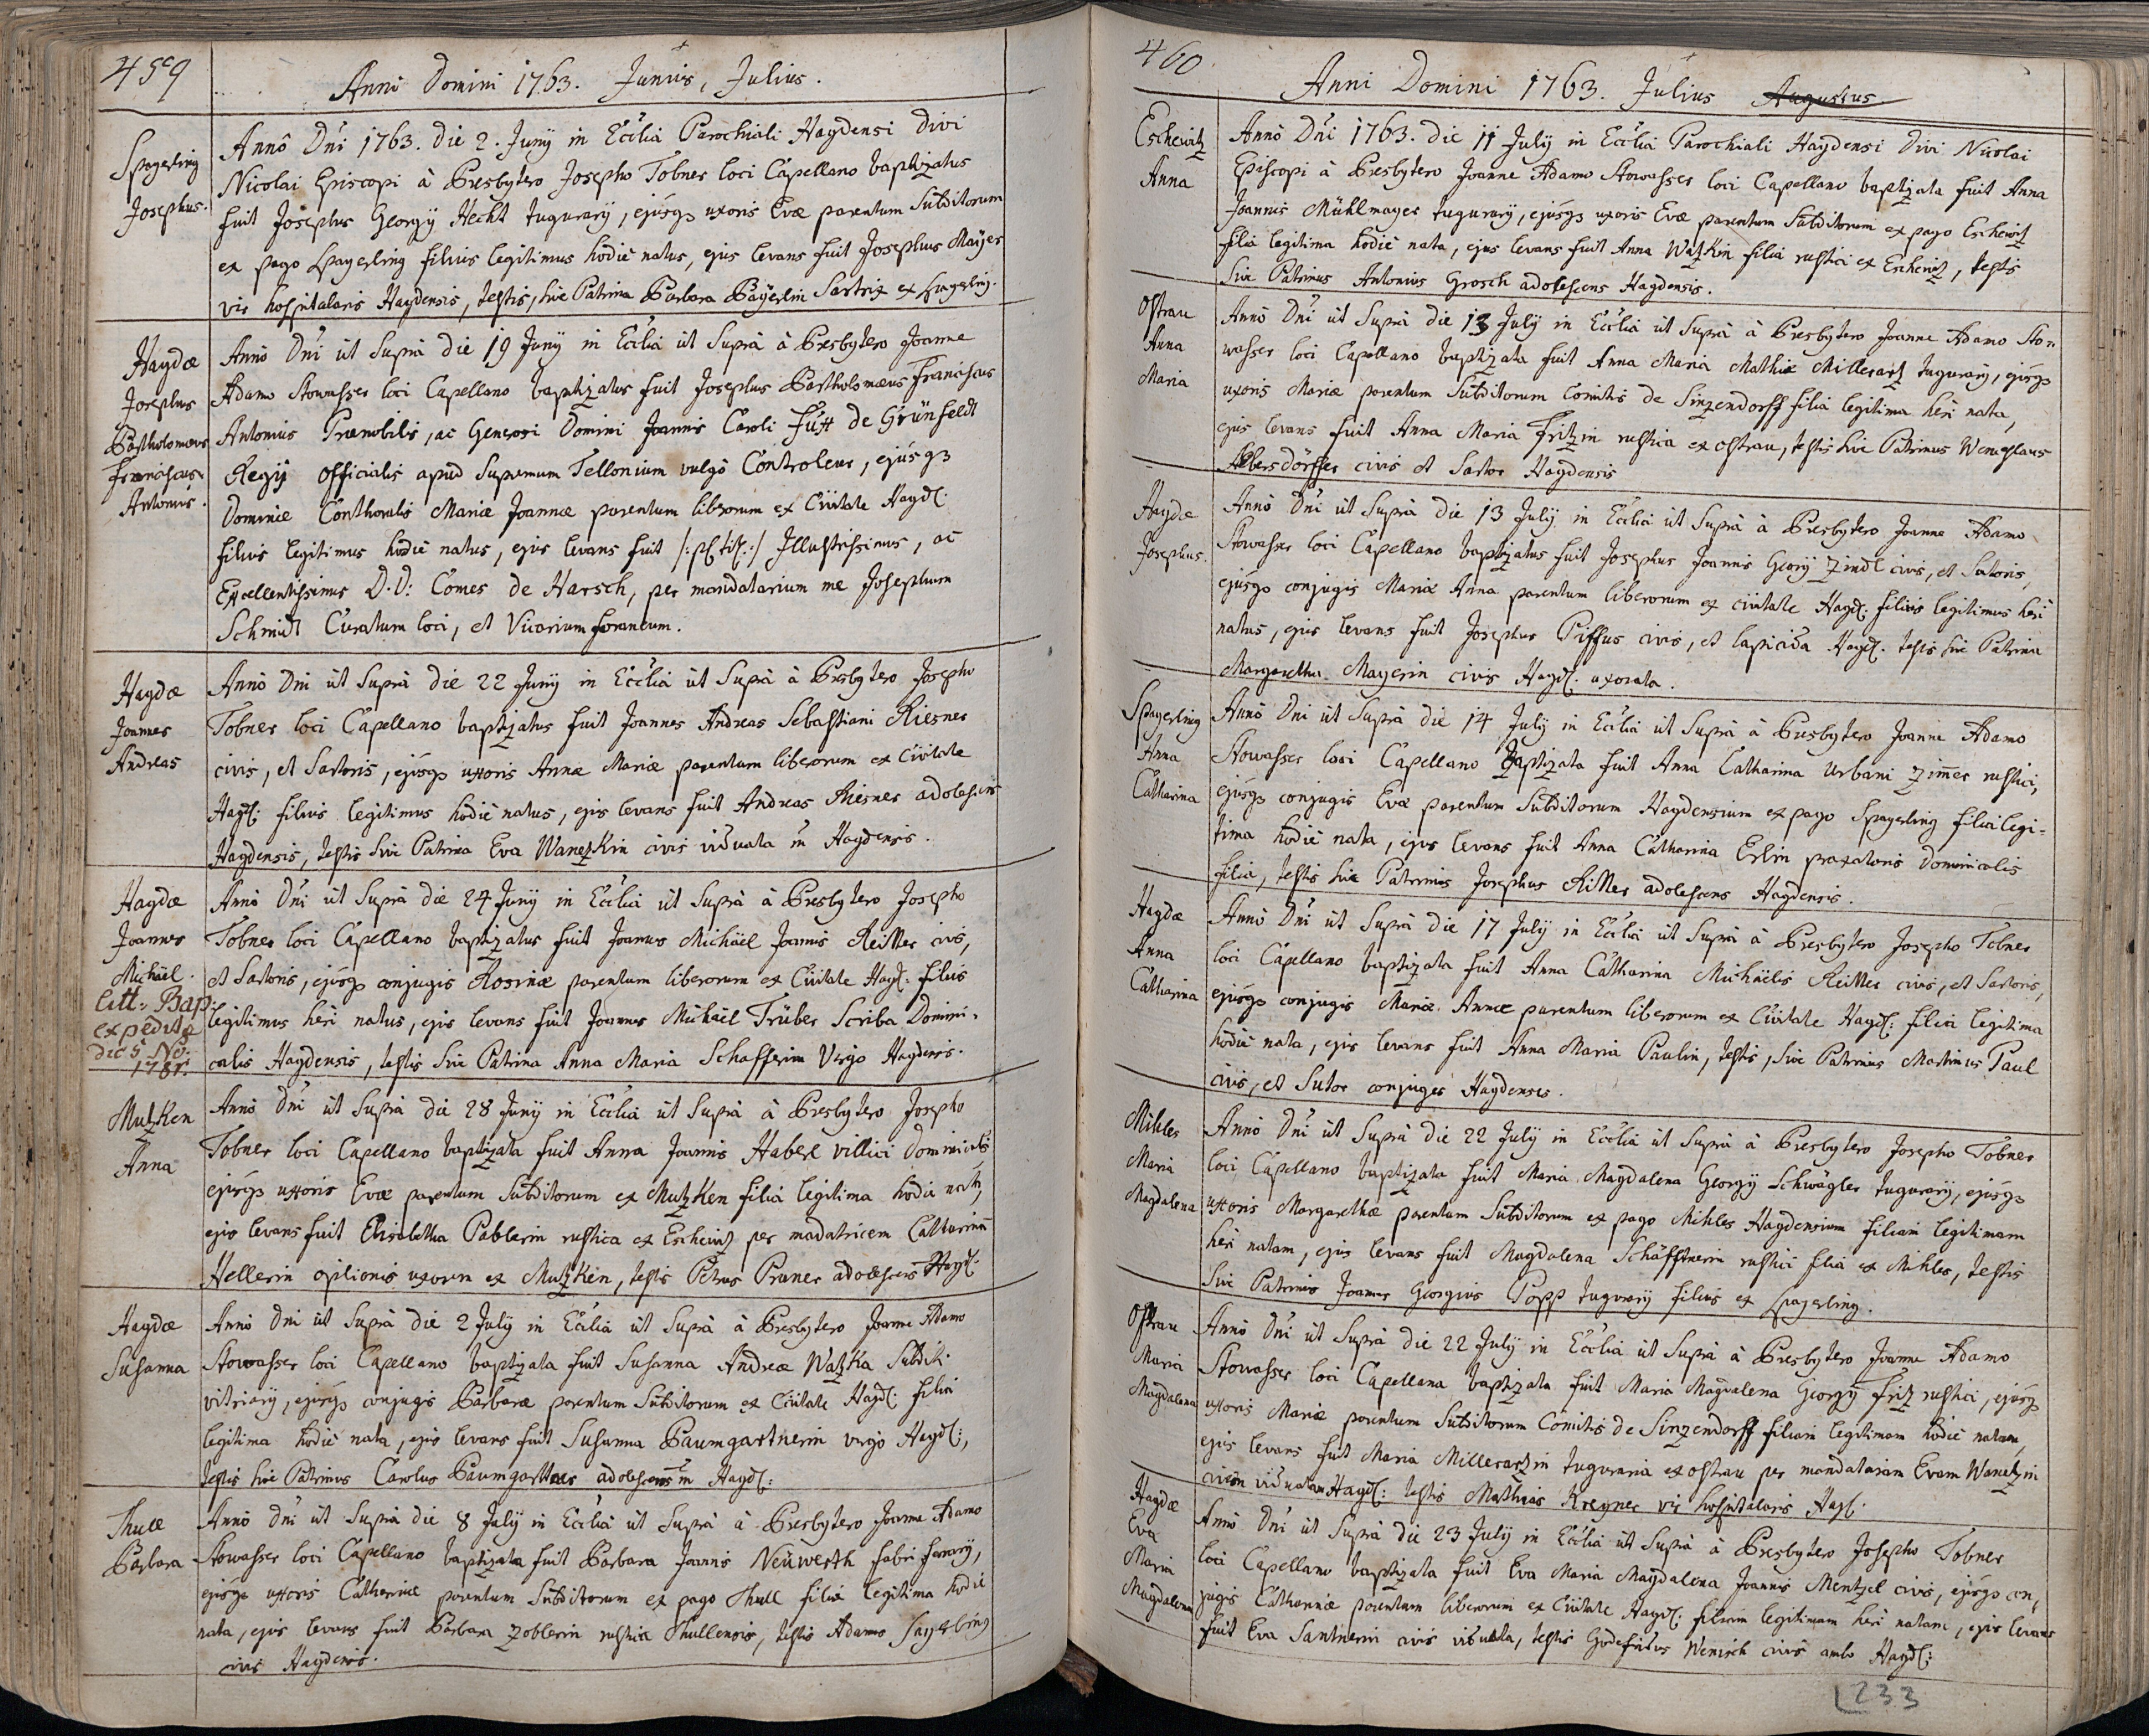 459
Anni Domini 1763. Junius, Julius.
Spayerling
Josephus.
Annô Dni 1763. die 2. Junij in Ecclia Parochiali Haydensi Divi
Nicolai Episcopi à Presbytero Josepho Tobner loci Capellano baptizatus
fuit Josephus Georgij Hecht tugurarij, ejúsq3 uxoris Evæ parentum Subditorum
ex pago Spayerling filius legitimus hodiè natus, ejus levans fuit Josephus Maÿer
vir hospitalaris Haydensis, testis, sive Patrina Barbara Baÿerlin Sartrix ex Spayerling.
Haydæ
Josephus
Bartholomæus
Franciscus
Antonius.
Annô Dni ut Suprà die 19 Junij in Ecclia ut Suprà à Presbytero Joanne
Adamo Stowasser loci Capellano baptizatus fuit Josephus Bartholomæus Franciscus
Antonius Prænobilis, ac Generosi Domini Joannis Caroli de Grünfeldt
Regij Officialis apud Supremum Tellonium vulgò Controleur, ejúsq3
Dominæ Conthoralis Mariæ Joannæ parentum liberorum ex Civitate Hayd:
filius legitimus hodiè natus, ejus levans fuit /: :/ Illustrissimus, ac
Excellentissimus D.D: Comes de Harsch, per mandatarium me Josephum
Schmidt Curatum loci, et Vicarium foraneum.
Haydæ
Joannes
Andreas
Annô Dni ut Suprà die 22 Junij in Ecclia ut Suprà à Presbytero Josepho
Tobner loci Capellano baptizatus fuit Joannes Andreas Sebastiani Riesner
civis, et Sartoris, ejúsq3 uxoris Annæ Mariæ parentum liberorum ex Civitate
Hayd: filius legitimus hodiè natus, ejus levans fuit Andreas Riesner adolescens
Haydensis, testis sive Patrina Eva Wanezkin civis viduata in Haydensis.
Haydæ
Joannes
Michäel.
Litt: Bap:
expedita
die 5 No:
1781.
Annô Dni ut Suprà die 24 Junij in Ecclia ut Suprà à Presbytero Josepho
Tobner loci Capellano baptizatus fuit Joannes Michäel Joannis Reitter civis,
et Sartoris, ejúsq3 conjugis Rosinæ parentum liberorum ex Civitate Hayd: filius
legitimus heri natus, ejus levans fuit Joannes Michäel Trüber Scriba Domini-
calis Haydensis, testis sive Patrina Anna Maria Schafferin Virgo Haydensis.
Mutzken
Anna
Annô Dni ut Suprà die 28 Junij in Ecclia ut Suprà à Presbytero Josepho
Tobner loci Capellano baptizata fuit Anna Joannis Haberl villici Dominicalis
ejúsq3 uxoris Evæ parentum Subditorum ex Mutzken filia legitima hodiè nata,
ejus levans fuit Elisabetha Pablerin rustica ex Eschewitz per madatricem Catharinam
Hellerin opilionis uxorem ex Mutzken, testis Petrus Pruner adolescens Hayd:
Haydæ
Susanna
Annô Dni ut Suprà die 2 Julij in Ecclia ut Suprà à Presbytero Joanne Adamo
Stowasser loci Capellano baptizata fuit Susanna Andreæ Watzka Subditi
vitriarij, ejúsq3 conjugis Barbaræ parentum Subditorum ex Civitate Hayd: filia
legitima hodiè nata, ejus levans fuit Susanna Baumgartnerin virgo Hayd:,
testis sive Patrinus Carolus Baumgarttner adolescens in Hayd:
Thull
Barbara
Annô Dni ut Suprà die 8 Julij in Ecclia ut Suprà à Presbytero Joanne Adamo
Stowasser loci Capellano baptizata fuit Barbara Joannis Neüwerth fabri ferrarij,
ejúsq3 uxoris Catharinæ parentum Subditorum ex pago Thull filia legitima hodiè
nata, ejus levans fuit Barbara Zoblerin rustica Thullensis, testis Adamus Sayerling
civis Haydensis.
460
Anni Domini 1763. Julius Augustus.
Eschewitz
Anna
Annô Dni 1763. die 11 Julij in Ecclia Parochiali Haydensi Divi Nicolai
Episcopi à Presbytero Joanne Adamo Stowasser loci Capellano baptizata fuit Anna
Joannis Mühlmayer tugurarij, ejúsq3 uxoris Evæ parentum Subditorum ex pago Eschewitz
filia legitima hodiè nata, ejus levans fuit Anna Watzkin filia rustici ex Eschewitz, testis
sive Patrinus Antonius Grosch adolescens Haydensis.
Ostrau
Anna
Maria
Annô Dni ut Suprà die 13 Julij in Ecclia ut Suprà à Presbytero Joanne Adamo Sto-
wasser loci Capellano baptizata fuit Anna Maria Mathiæ Millerartz tugurarij, ejúsq3
uxoris Mariæ parentum Subditorum Comitis de Sinzendorff filia legitima heri nata,
ejus levans fuit Anna Maria Fritzin rustica ex Ostrau, testis sive Patrinus Wenceslaus
Albersdörffer civis et Sartor Haydensis
Haydæ
Josephus.
Annô Dni ut Suprà die 13 Julij in Ecclia ut Suprà à Presbytero Joanne Adamo
Stowasser loci Capellano baptizatus fuit Josephus Joannis Georij Zindl civis, et Sutoris,
ejúsq3 conjugis Mariæ Anna parentum liberorum ex civitate Hayd: filius legitimus heri
natus, ejus levans fuit Josephus Piffus civis, et lapicida Hayd: testis sive Patrina
Margaretha Mayerin civis Hayd: uxorata.
Spayerling
Anna
Catharina
Annô Dni ut Suprà die 14 Julij in Ecclia ut Suprà à Presbytero Joanne Adamo
Stowasser loci Capellano baptizata fuit Anna Catharina Urbani Zimer rustici,
ejúsq3 conjugis Evæ parentum Subditorum Haydensium ex pago Spayerling filia legi-
tima hodiè nata, ejus levans fuit Anna Catharina Erlin praxatoris Dominicalis
filia, testis sive Patrinus Josephus Ritter adolescens Haydensis.
Haydæ
Anna
Catharina
Annô Dni ut Suprà die 17 Julij in Ecclia ut Suprà à Presbytero Josepho Tobner
loci Capellano baptizata fuit Anna Catharina Michäelis Reitter civis, et Sartoris,
ejúsq3 conjugis Mariæ Annæ parentum liberorum ex Civitate Hayd: filia legitima
hodiè nata, ejus levans fuit Anna Maria Paulin, testis, sive Patrinus Martinus Paul
civis, et Sutor conjuges Haydenses.
Mihles
Maria
Magdalena
Annô Dni ut Suprà die 22 Julij in Ecclia ut Suprà à Presbytero Josepho Tobner
loci Capellano baptizata fuit Maria Magdalena Georgij Schwägler tugurarij, ejúsq3
uxoris Margarethæ parentum Subditorum ex pago Mihles Haydensium filiam legitimam
heri natam, ejus levans fuit Magdalena Schäfftnerin rustici filia ex Mihles, testis
sive Patrinus Joannes Georgius Popp tugurarij filius ex Spayerling.
Ostrau
Maria
Magdalena
Annô Dni ut Suprà die 22 Julij in Ecclia ut Suprà à Presbytero Joanne Adamo
Stowasser loci Capellana baptizata fuit Maria Magdalena Georgij Fritz rustici, ejúsq3
uxoris Mariæ parentum Subditorum Comitis de Sinzendorff filiam legitimam hodiè natam,
ejus levans fuit Maria Millerartzin tuguraria ex Ostrau per mandatariam Evam Wanetzin
civem viduatam Hayd: testis Mathias Kreyner vir hospitalaris Hayd:
Haydæ
Eva
Maria
Magdalena
Annô Dni ut Suprà die 23 Julij in Ecclia ut Suprà à Presbytero Josepho Tobner
loci Capellano baptizata fuit Eva Maria Magdalena Joannis Mentzel civis, ejúsq3 con-
jugis Catharinæ parentum liberorum ex Civitate Hayd: filiam legitimam heri natam, ejus levans
fuit Eva Santnerin civis viduata, testis Godefridus Wenisch civis ambo Hayd:
233